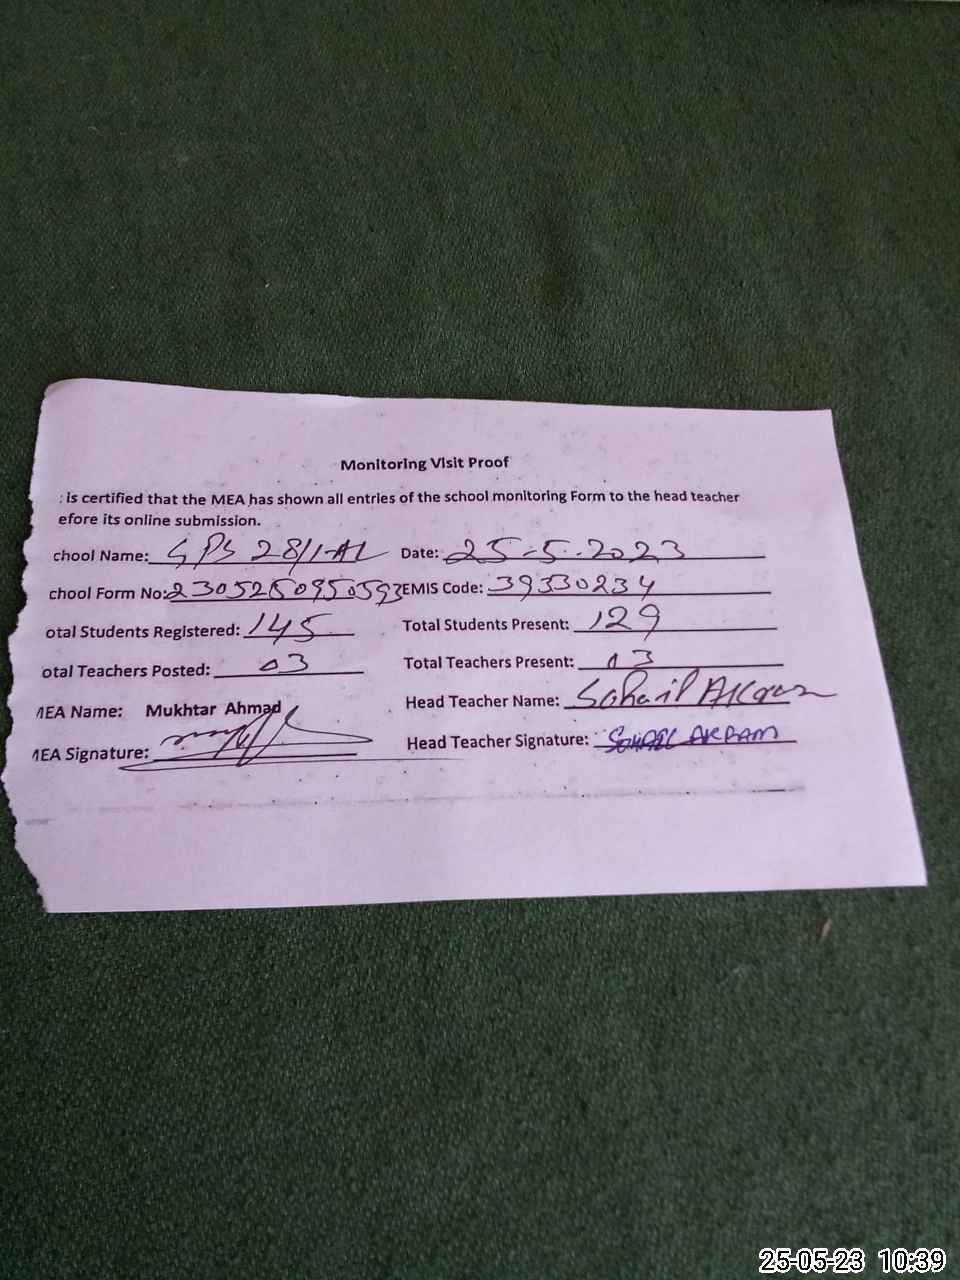 Monitoring Visit Proof
: is certified that the MEA has shown all entries of the school monitoring Form to the head teacher
efore its online submission.
chool Name: GPS 28/1-AL Date: 25-5-2023
chool Form No: 2305250950593 EMIS Code: 39330234
otal Students Registered: 145 Total Students Present: 129
otal Teachers Posted: 03 Total Teachers Present: 03
MEA Name: Mukhtar Ahmad Head Teacher Name: Sohail Akram
MEA Signature: Head Teacher Signature: SOHAIL AKRAM
25-05-23 10:39